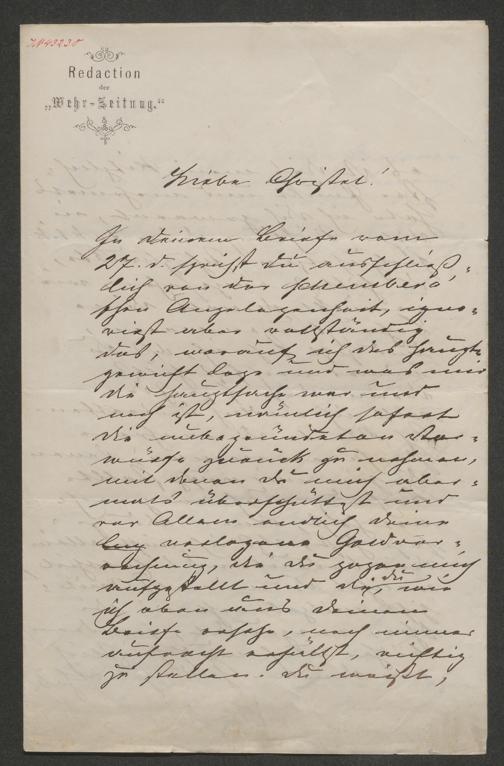 Redaction
der
„Wehr-Zeitung.“
Liebe Christel!
In deinem Briefe vom
27. d. sprichst du ausschließ-
lich von der
schen Angelegenheit, igno-
rirst aber vollständig
das, worauf ich das Haupt-
gewicht lege und was mir
die Hauptsache war und
noch ist, nämlich sofort
die unbegründeten Vor-
würfe zurück zu nehmen,
mit denen du mich aber-
mals überschüttest und
vor Allem endlich deine
verlogene Geldver-
rechnung, die du gegen mich
aufgestellt und die, wie
du
ich eben aus deinem
Briefe ersehe, noch immer
aufrecht erhältst, richtig
zu stellen. Du weißt,